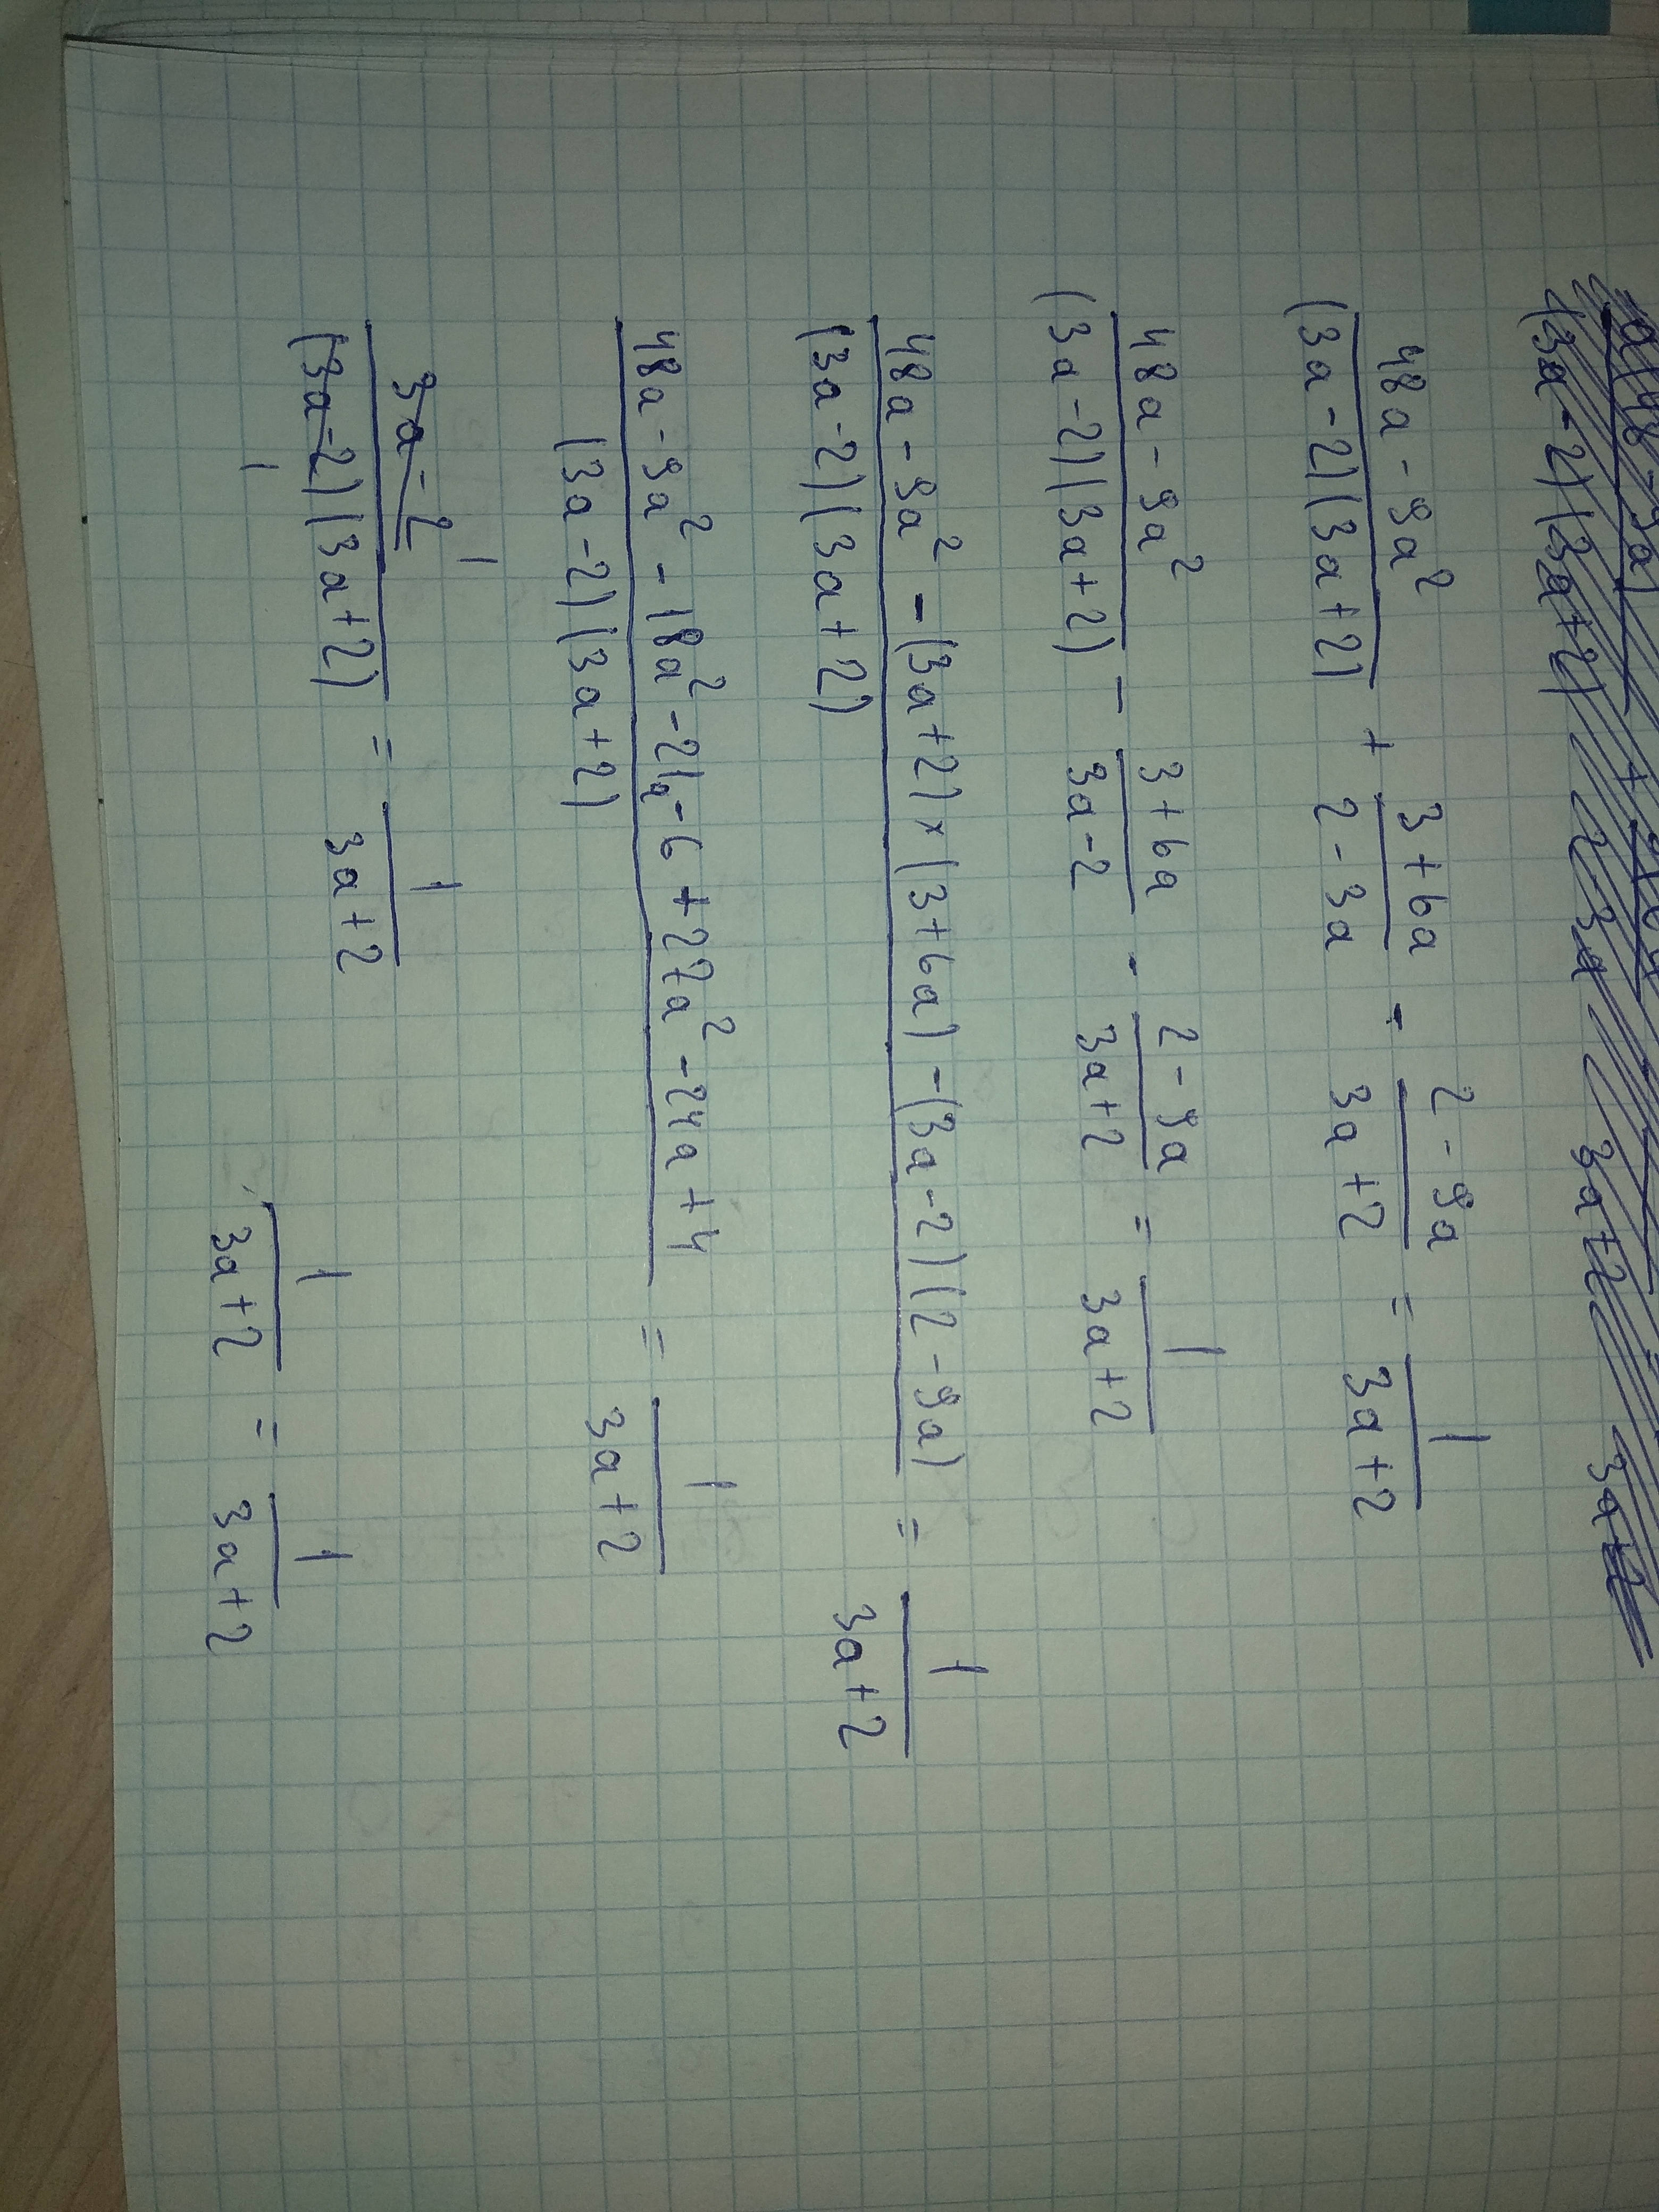 (48a - 9a²)/((3a-2)(3a+2)) + (3+6a)/(2-3a) - (2-9a)/(3a+2) = 1/(3a+2)
(48a - 9a²)/((3a-2)(3a+2)) - (3+6a)/(3a-2) - (2-9a)/(3a+2) = 1/(3a+2)
(48a - 9a² - (3a+2)×(3+6a) - (3a-2)(2-9a))/((3a-2)(3a+2)) = 1/(3a+2)
(48a - 9a² - 18a² - 21a - 6 + 27a² - 24a + 4)/((3a-2)(3a+2)) = 1/(3a+2)
(3a-2)/((3a-2)(3a+2)) = 1/(3a+2)
1/(3a+2) = 1/(3a+2)